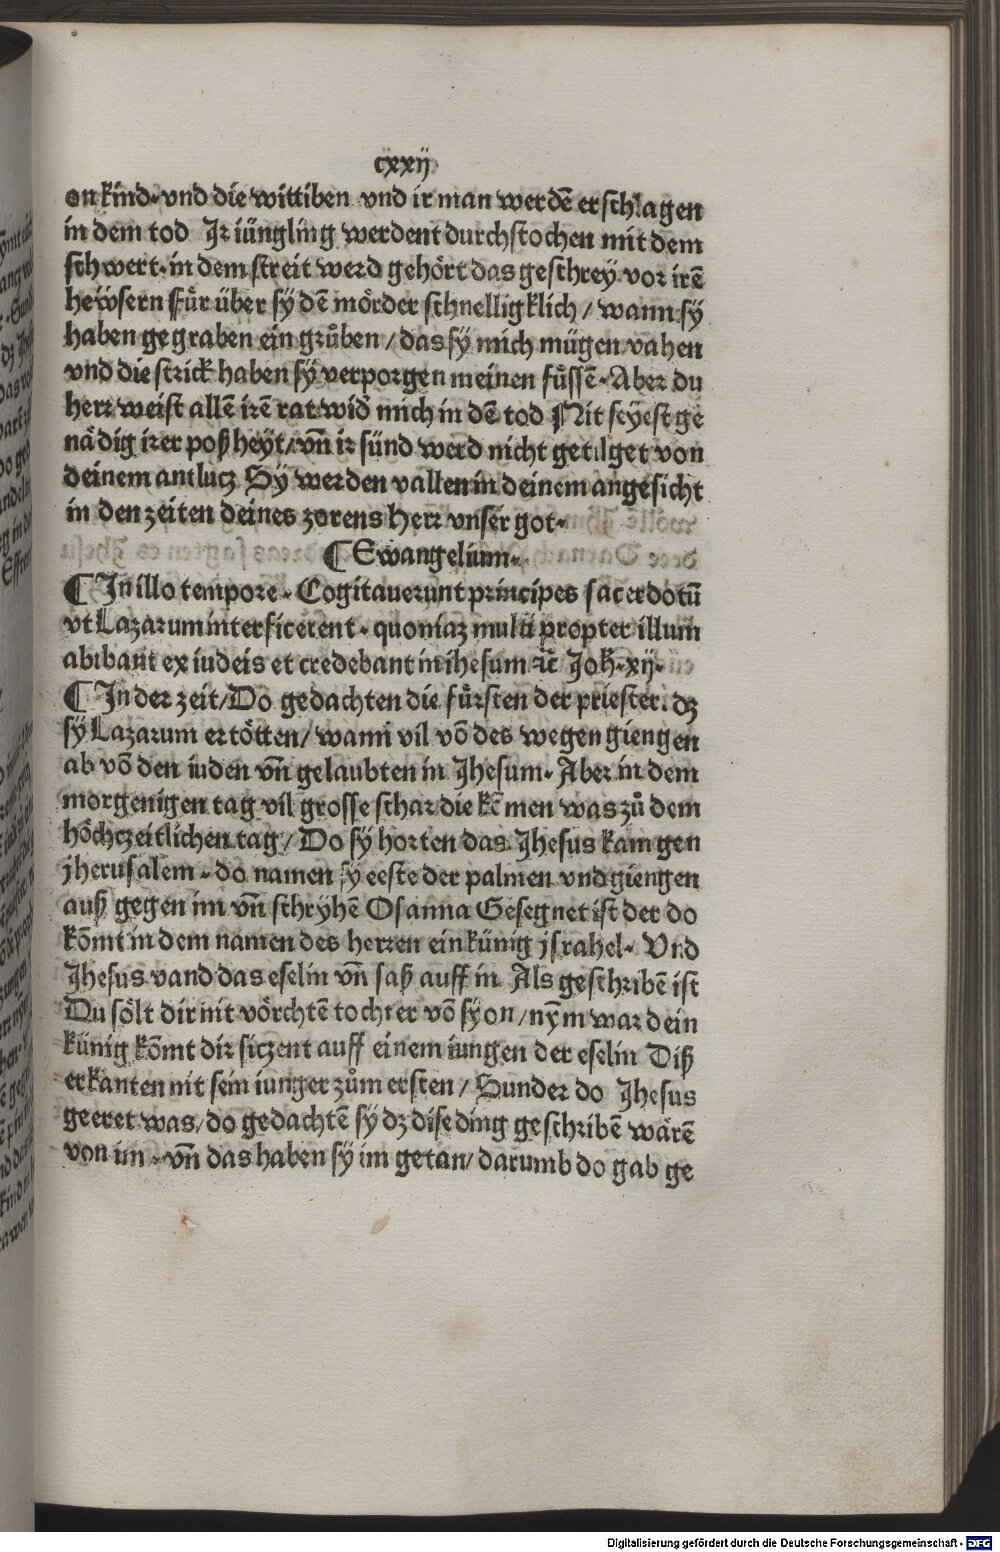 cxxij
on kind· vnd die wittiben vnd ir man werdē erschlagen
in dem tod Jr iüngling werdent durchstochen mit dem
schwert· in dem streit werd gehört das geschrey vor irē
heẅsern Für über sÿ dē mörder schnelligklich / wann sÿ
haben gegraben ein grůben / das sÿ mich mügen vahen
vnd die strick haben sÿ verporgen meinen füssē· Aber du
herr weist allē irē rat wid̕ mich in dē tod Nit seÿest ge
nädig irer poßheÿt / vn̄ ir sünd werd nicht getilget von
deinem antlucz Sÿ werden vallen in deinem angesicht
in den zeiten deines zorens herr vnser got·
¶ Ewangelium·
¶ Jn illo tempore· Cogitauerunt principes sacerdotū
vt Lazarum interficerent· quoniaz multi propter illum
abibant ex iudeis et credebant in ihesum ⁊c̄ Joh·xij·
¶ Jn der zeit / Do gedachten die fürsten der priester. dz
sÿ Lazarum ertötten / wann vil vō des wegen giengen
ab vō den iuden vn̄ gelaubten in Jhesum· Aber in dem
morgenigen tag vil grosse schar die kēmen was zů dem
höchczeitlichen tag / Do sÿ horten das Jhesus kam gen
jherusalem· do namen sy eeste der palmen vnd giengen
auß gegen im vn̄ schryhē Osanna Gesegnet ist der do
kōmt in dem namen des herren ein künig jsrahel· Vnd
Jhesus vand das eselin vn̄ saß auff in Als geschribē ist
Du sölt dir nit vörchtē tochter vō sÿon / nÿm war dein
künig kōmt dir siczent auff einem iungen der eselin Diß
erkanten nit sein iunger zům ersten / Sunder do Jhesus
geeret was / do gedachtē sÿ dz dise ding geschribē wärē
von im· vn̄ das haben sÿ im getan / darumb do gab ge
Digitalisierung gefördert durch die Deutsche Forschungsgemeinschaft - DFG